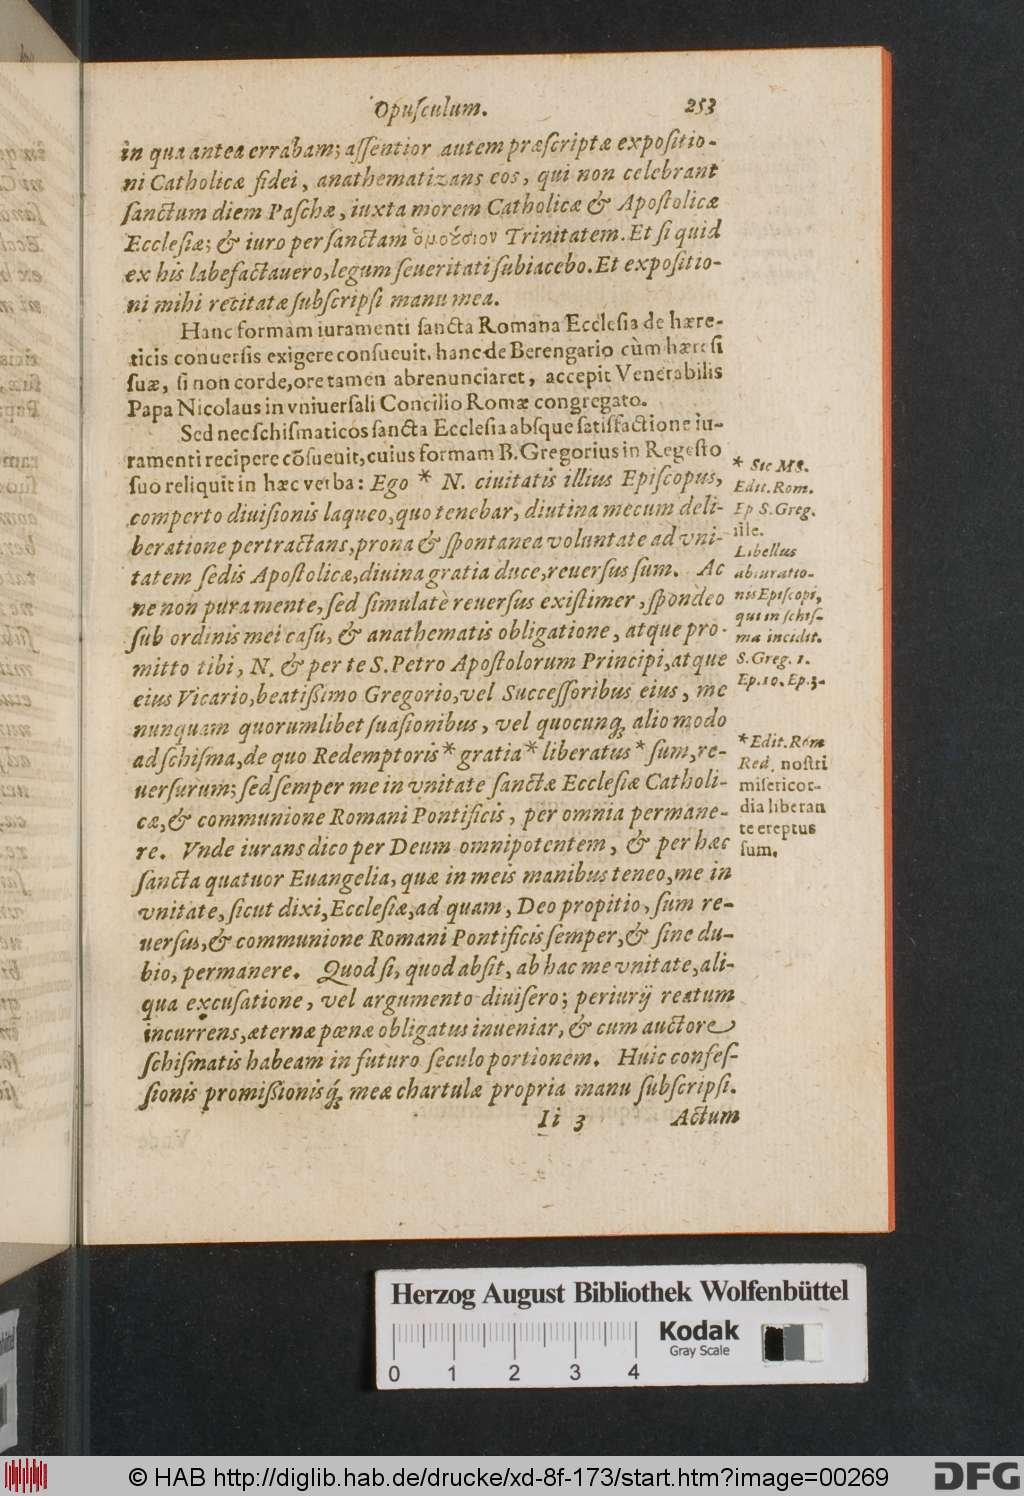 Opuſculum. 253
in qua antea errabam; aſſentior autem præſcriptæ expoſitio-
ni Catholicæ fidei, anathematizans eos, qui non celebrant
ſanctum diem Paſchæ, iuxta morem Catholicæ & Apoſtolicæ
Eccleſiæ; & iuro per ſanctam ὁμοούσιον Trinitatem. Et ſi quid
ex his labefactauero, legum ſeueritati ſubiacebo. Et expoſitio-
ni mihi recitatæ ſubſcripſi manu mea.
Hanc formam iuramenti ſancta Romana Eccleſia de hære-
ticis conuerſis exigere conſueuit. hanc de Berengario cùm hæreſi
ſuæ, ſi non corde, ore tamen abrenunciaret, accepit Venerabilis
Papa Nicolaus in vniuerſali Concilio Romæ congregato.
Sed nec ſchiſmaticos ſancta Eccleſia abſque ſatisfactione iu-
ramenti recipere cõſueuit, cuius formam B. Gregorius in Regeſto
ſuo reliquit in hæc verba: Ego * N. ciuitatis illius Epiſcopus,
comperto diuiſionis laqueo, quo tenebar, diutina mecum deli-
beratione pertractans, prona & ſpontanea voluntate ad vni-
tatem ſedis Apoſtolicæ, diuina gratia duce, reuerſus ſum. Ac
ne non pura mente, ſed ſimulatè reuerſus exiſtimer, ſpondeo
ſub ordinis mei caſu, & anathematis obligatione, atque pro-
mitto tibi, N. & per te S. Petro Apoſtolorum Principi, atque
eius Vicario, beatiſſimo Gregorio, vel Succeſſoribus eius, me
nunquam quorumlibet ſuaſionibus, vel quocunq; alio modo
ad ſchiſma, de quo Redemptoris * gratia * liberatus * ſum, re-
uerſurum; ſed ſemper me in vnitate ſanctæ Eccleſiæ Catholi-
cæ, & communione Romani Pontificis, per omnia permane-
re. Vnde iurans dico per Deum omnipotentem, & per hæc
ſancta quatuor Euangelia, quæ in meis manibus teneo, me in
vnitate, ſicut dixi, Eccleſiæ, ad quam, Deo propitio, ſum re-
uerſus, & communione Romani Pontificis ſemper, & ſine du-
bio, permanere. Quod ſi, quod abſit, ab hac me vnitate, ali-
qua excuſatione, vel argumento diuiſero; periurij reatum
incurrens, æternæ pœnæ obligatus inueniar, & cum auctore
ſchiſmatis habeam in futuro ſeculo portionem. Huic confeſ-
ſionis promiſſionisq́; meæ chartulæ propria manu ſubſcripſi.
Ii 3 Actum
* Sic MS.
Edit. Rom.
Ep S. Greg.
ille.
Libellus
abiuratio-
nis Epiſcopi,
qui in ſchiſ-
ma incidit.
S. Greg. 1.
Ep. 10. Ep. 3.
* Edit. Rom
Red. noſtri
miſericor-
dia liberan
te ereptus
ſum.
Herzog August Bibliothek Wolfenbüttel
Kodak
Gray Scale
0 1 2 3 4
© HAB http://diglib.hab.de/drucke/xd-8f-173/start.htm?image=00269
DFG